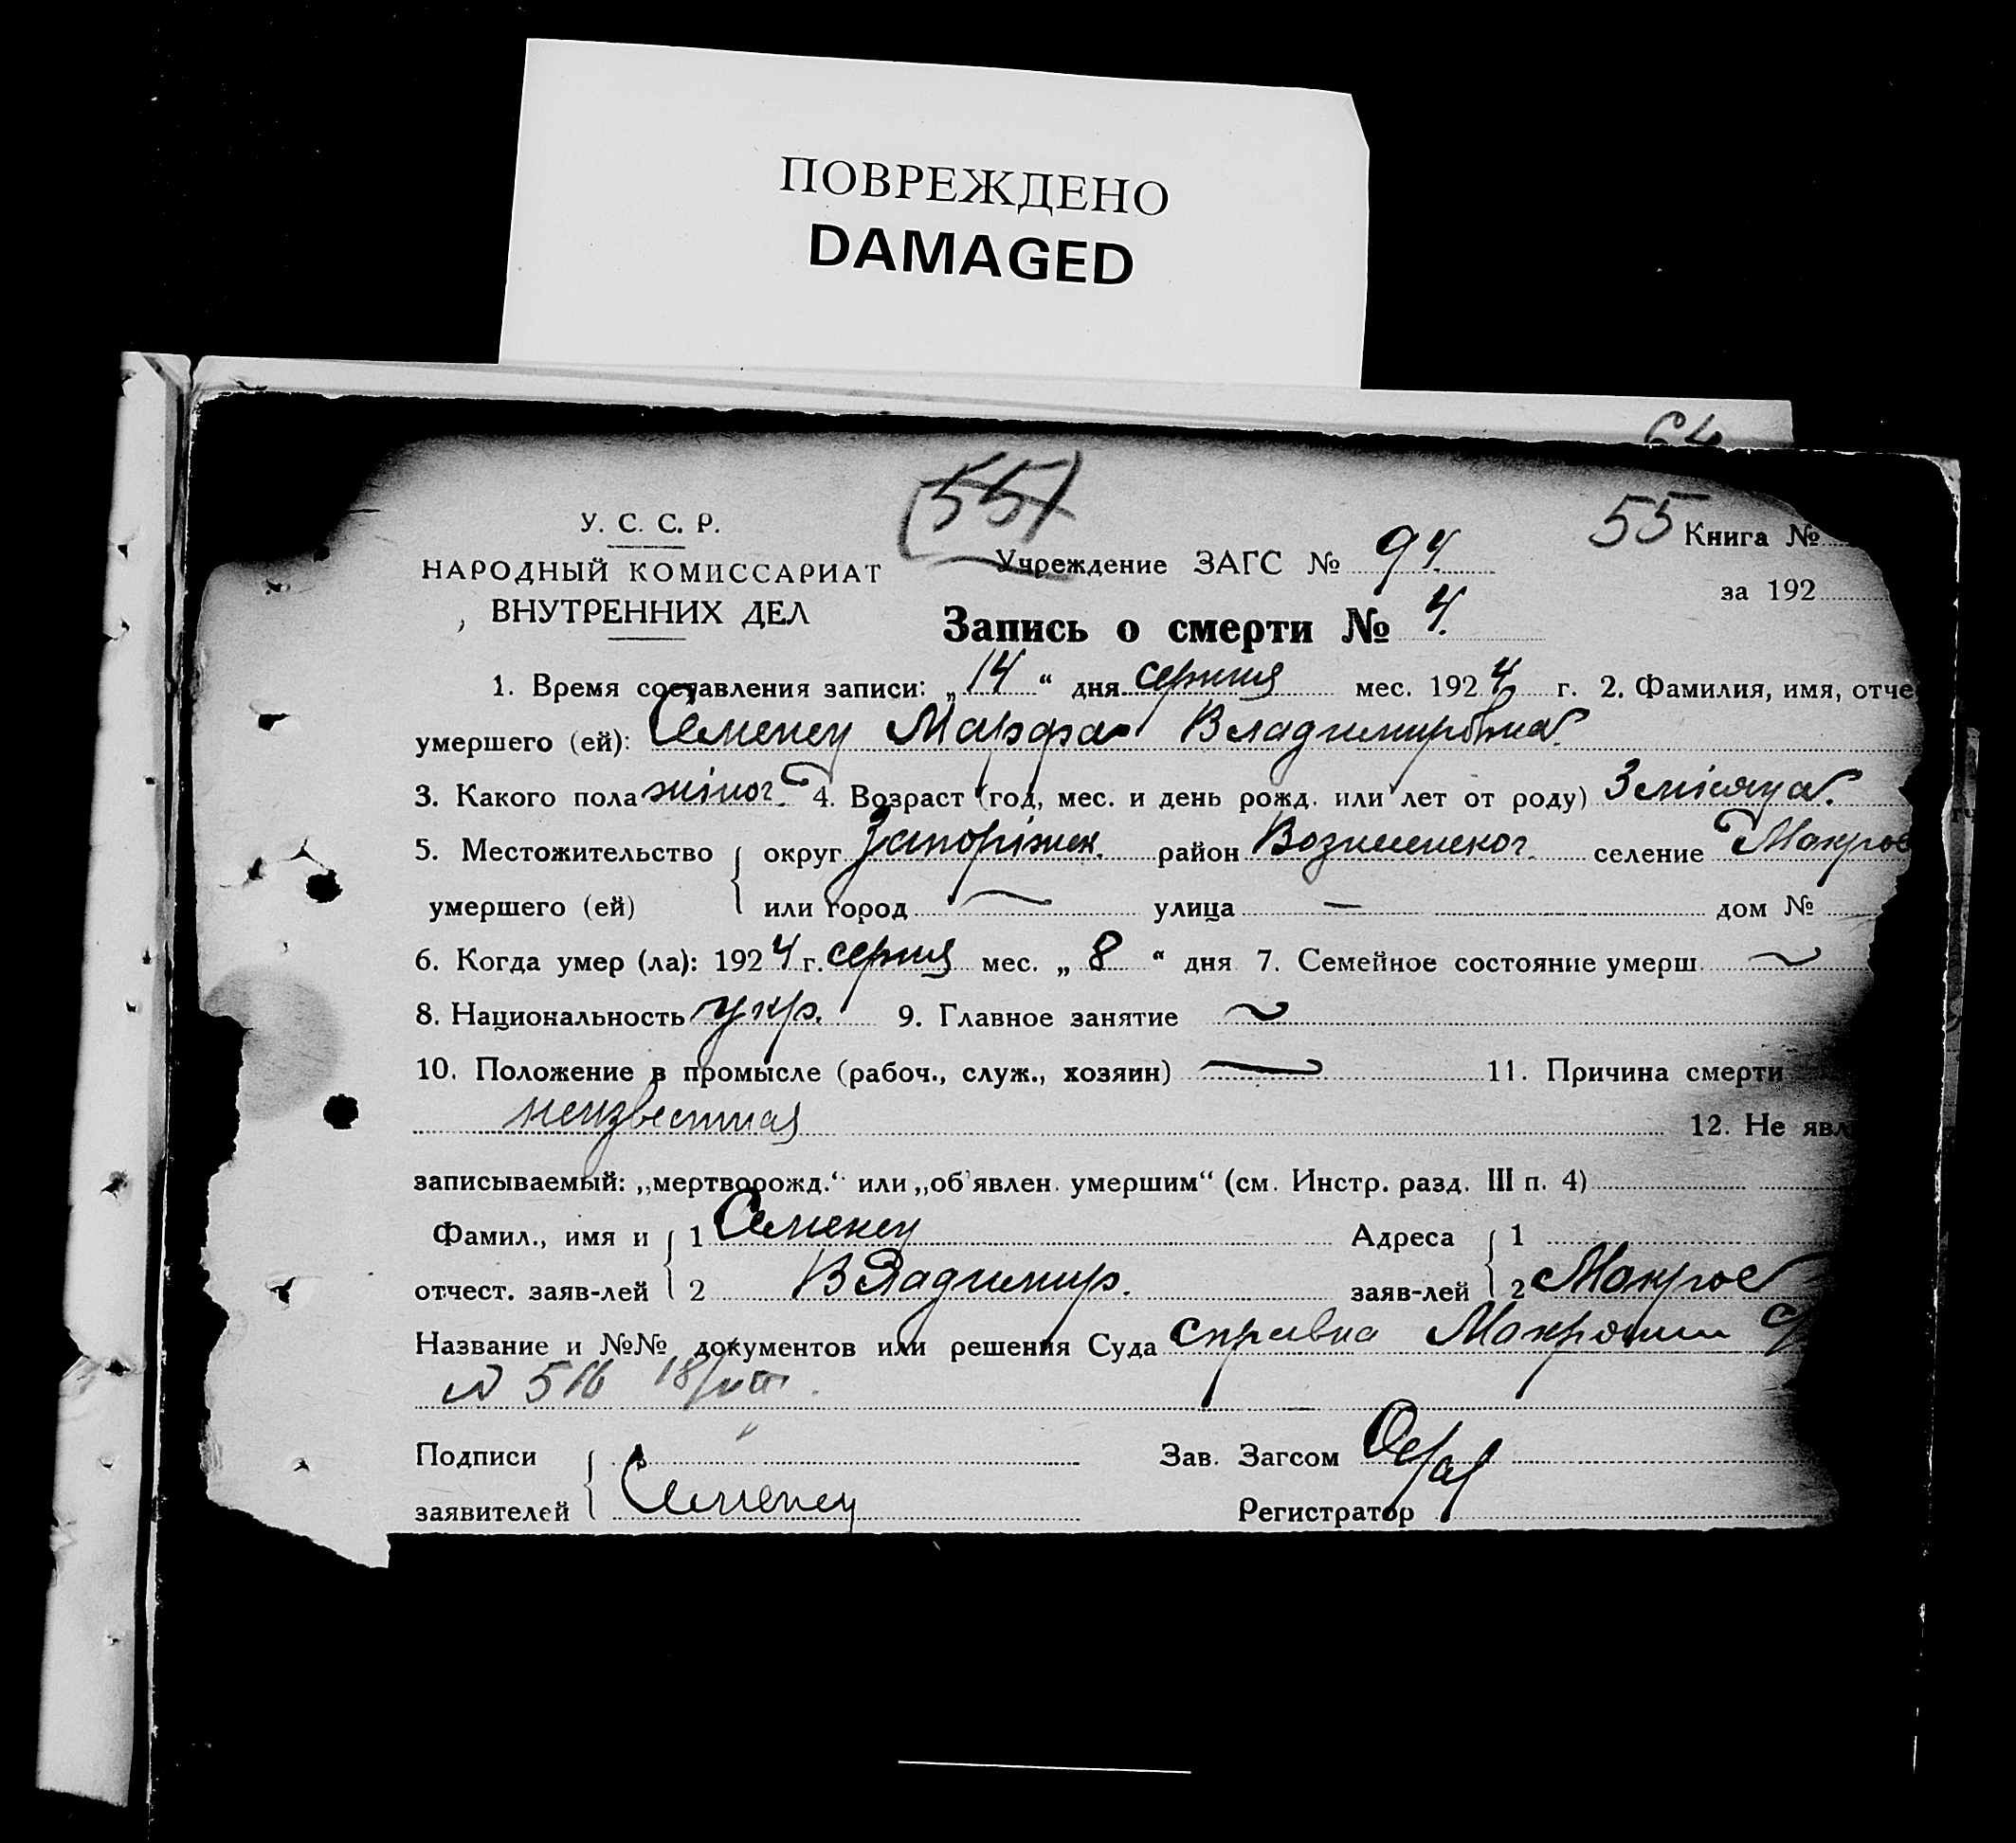 ПОВРЕЖДЕНО
DAMAGED
64
(55)
55 Книга №
У. С. С. Р.
НАРОДНЫЙ КОМИССАРИАТ
ВНУТРЕННИХ ДЕЛ
Учреждение ЗАГС № 94.
за 192
Запись о смерти № 4.
1. Время составления записи: „14“ дня серпня мес. 1924 г. 2. Фамилия, имя, отче
умершего (ей): Семенец Марфа Владимировна
3. Какого пола жіноч. 4. Возраст (год, мес. и день рожд. или лет от роду) 3 місяца.
5. Местожительство округ Запоріжск. район Вознесенског. селение Мокрое
умершего (ей) или город — улица — дом №
6. Когда умер (ла): 1924 г. серпня мес. „8“ дня 7. Семейное состояние умерш. ~
8. Национальность укр. 9. Главное занятие ~
10. Положение в промысле (рабоч., служ., хозяин) — 11. Причина смерти
неизвестная 12. Не явл
записываемый: „мертворожд.“ или „об'явлен. умершим“ (см. Инстр. разд. III п. 4)
Фамил., имя и 1 Семенец Адреса 1
отчест. заяв-лей 2 Владимир. заяв-лей 2 Мокрое
Название и №№ документов или решения Суда справка Мокрянськ
№ 516 18/VIII.
Подписи Зав. Загсом
заявителей Семенец Регистратор